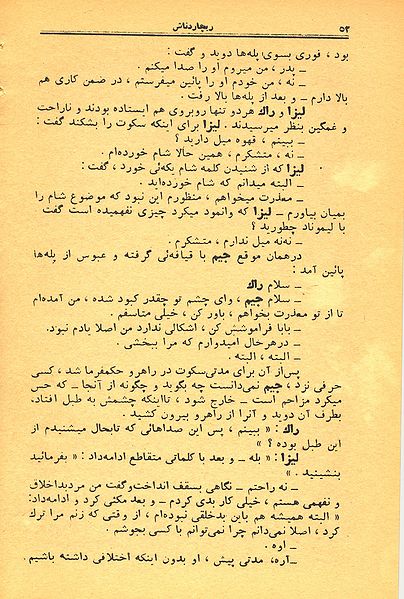 ۵۳ ریچاردناش
بود ، فوری بسوی پله‌ها دوید و گفت :
ـ پدر ، من میروم او را صدا میکنم .
ـ نه ، من خودم او را پائین میفرستم ، در ضمن کاری هم
بالا دارم ـ و بعد از پله‌ها بالا رفت .
لیزا و راك هردو تنها روبروی هم ایستاده بودند و ناراحت
و غمگین بنظر میرسیدند . لیزا برای اینکه سکوت را بشکند گفت :
ـ ببینم ، قهوه میل دارید ؟
ـ نه ، متشکرم ، همین حالا شام خورده‌ام .
لیزا که از شنیدن کلمه شام یکه‌ئی خورد ، گفت :
ـ البته میدانم که شام خورده‌اید .
ـ معذرت میخواهم ، منظورم این نبود که موضوع شام را
بمیان بیاورم ـ لیزا که وانمود میکرد چیزی نفهمیده است گفت
با لیموناد چطورید ؟
ـ نه‌نه میل ندارم ، متشکرم .
درهمان موقع جیم با قیافه‌ئی گرفته و عبوس از پله‌ها
پائین آمد :
ـ سلام راك
ـ سلام جیم ، وای چشم تو چقدر کبود شده ، من آمده‌ام
تا از تو معذرت بخواهم ، باور کن ، خیلی متاسفم .
ـ بابا فراموشش کن ، اشکالی ندارد من اصلا یادم نبود.
ـ درهرحال امیدوارم که مرا ببخشی .
ـ البته ، البته .
پس‌از آن برای مدتی‌سکوت در راهرو حکمفرما شد ، کسی
حرفی نزد ، جیم نمی‌دانست چه بگوید و چگونه از آنجا ـ که حس
میکرد مزاحم است ـ خارج شود ، تااینکه چشمش به طبل افتاد،
بطرف آن دوید و آنرا از راهرو بیرون کشید .
راك : « ببینم ، پس این صداهائی که تابحال میشنیدم از
این طبل بوده ؟ »
لیزا : « بله ـ و بعد با کلماتی متقاطع ادامه‌داد : « بفرمائید
بنشینید . »
ـ نه راحتم ـ نگاهی بسقف انداخت‌وگفت من مردبداخلاق
و نفهمی هستم ، خیلی کار بدی کردم ـ و بعد مکثی کرد و ادامه‌داد:
« البته همیشه هم باین بدخلقی نبوده‌ام ، از وقتی که زنم مرا ترك
کرد ، اصلا نمی‌دانم چرا نمی‌توانم با کسی بجوشم .
ـ اوه .
ـ آره، مدتی پیش ، او بدون اینکه اختلافی داشته باشیم .